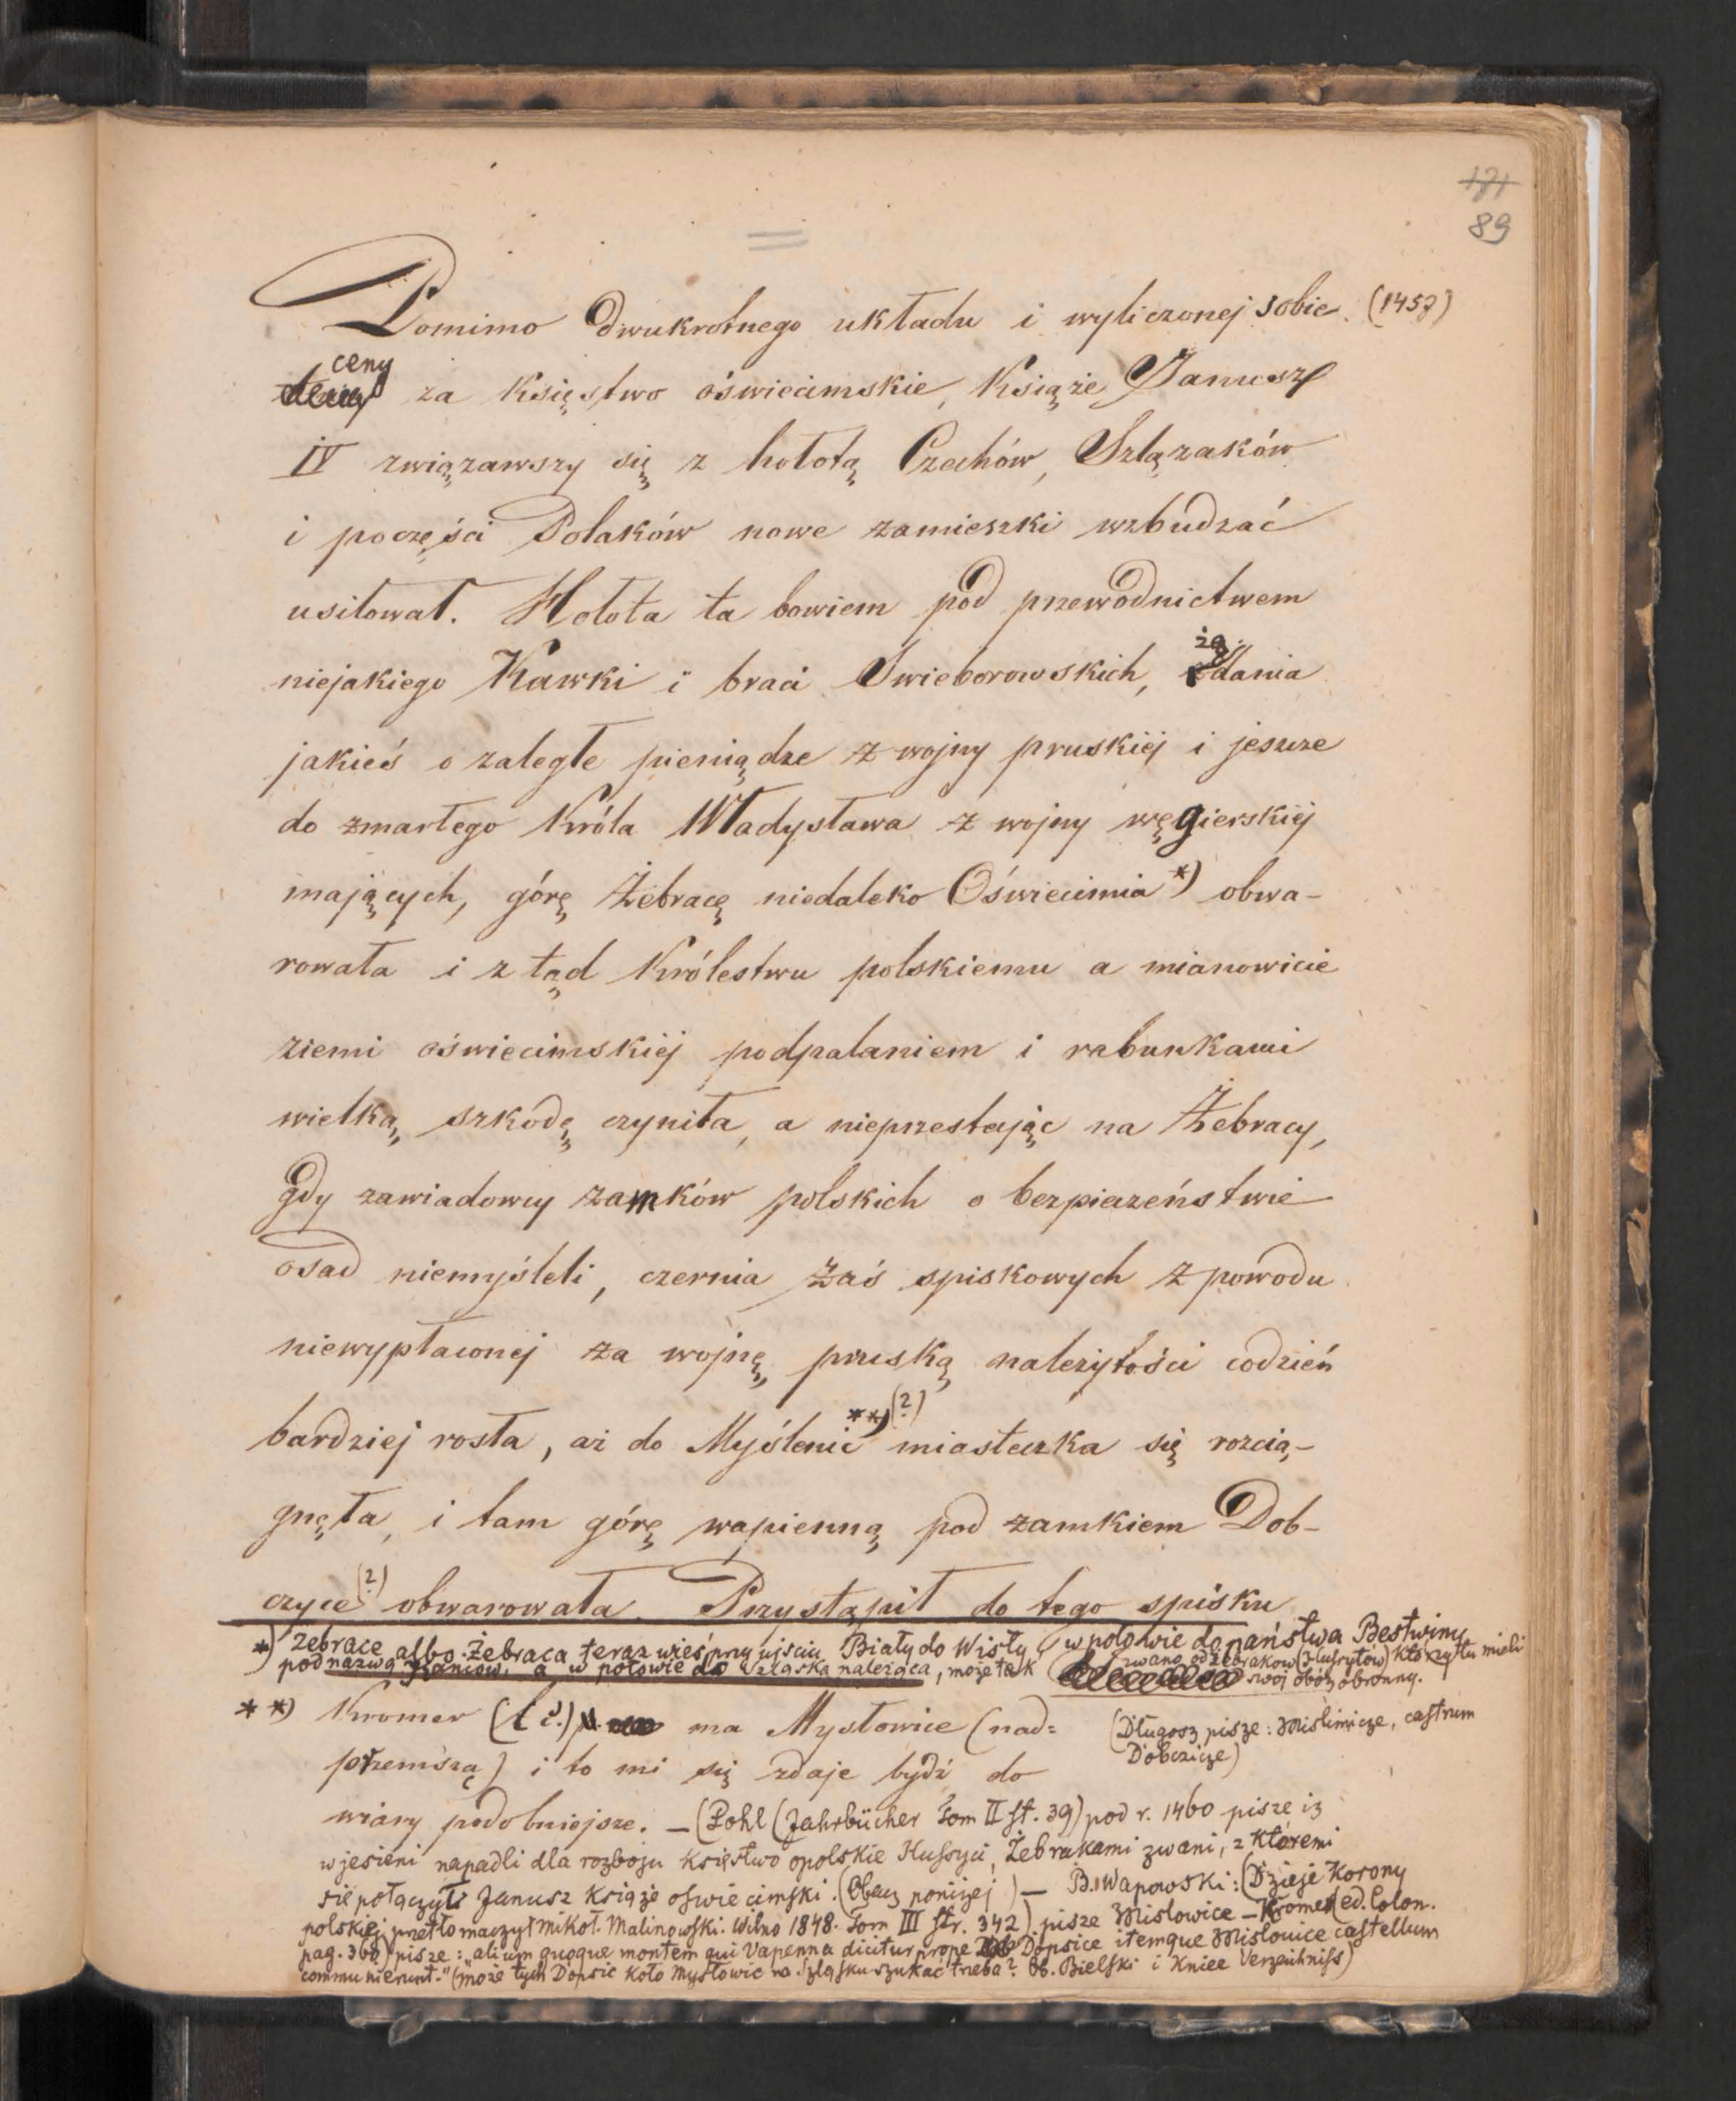 181
89
Pomimo dwukrotnego układu i wyliczonej sobie (1457)
ceny
za Księstwo oświecimskie, Książe Janusz
IV związawszy się z hołotą Czechów, Szlązaków
i poczęści Polaków nowe zamieszki wzbudzać
usiłował. Hołota ta bowiem pod przewodnictwem
niejakiego Kawki i braci Swieborowskich, żądania
jakieś o zaległe pieniądze z wojny pruskiéj i jeszcze
do zmarłego Króla Władysława z wojny węgierskiéj
mających, górę Żebracę niedaleko Oświecimia *) obwa-
rowała i z tąd Królestwu polskiemu a mianowicie
ziemi oświecimskiéj podpalaniem i rabunkami
wielką szkodę czyniła, a nieprzestając na Żebracy,
gdy zawiadowcy zamków polskich o bezpieczeństwie
osad niemyśleli, czernia zaś spiskowych z powodu
niewypłaconej za wojnę pruską należytości codzień
bardziej rosła, aż do Myślenic **) (?) miasteczka się rozcią-
gnęła, i tam górę wapienną pod zamkiem Dob-
czyce (?) obwarowała. Przystąpił do tego spisku
*) Zebrace albo Żebraca teraz wieś przy ujściu Biały do Wisły, w połowie do państwa Bestwiny
pod nazwą Kaniów, a w połowie do Szląska należąca, może tak zwano od żebraków (Hussytów) którzy tu mieli
swój obóz obronny.
**) Kromer (l. c.) ma Mysłowice (nad=
przemszą) i to mi się zdaje bydź do
(Długosz pisze: Mislimicze, castrum
Dobczicze)
wiary podobniejsze. — (Pohl (Jahrbücher Tom II st. 39) pod r. 1460 pisze iż
w jesieni napadli dla rozboju Księstwo opolskie Hussyci, Żebrakami zwani, z któremi
się połączył Janusz książe oświecimski. (Obacz poniżej) — B. Wapowski: (Dzieje Korony
polskiéj przetłomaczył Mikoł. Malinowski. Wilno 1848. Tom III str. 342) pisze Mislowice — Kromer (ed. Colon.
pag. 368) pisze: "alium quoque montem qui Vapenna dicitur prope Dopsice itemque Mislouice castellum
communierunt." (może tych Dopsic koło Mysłowic na Szląsku szukać trzeba? Ob. Bielski i Kniee Verzeichniss)